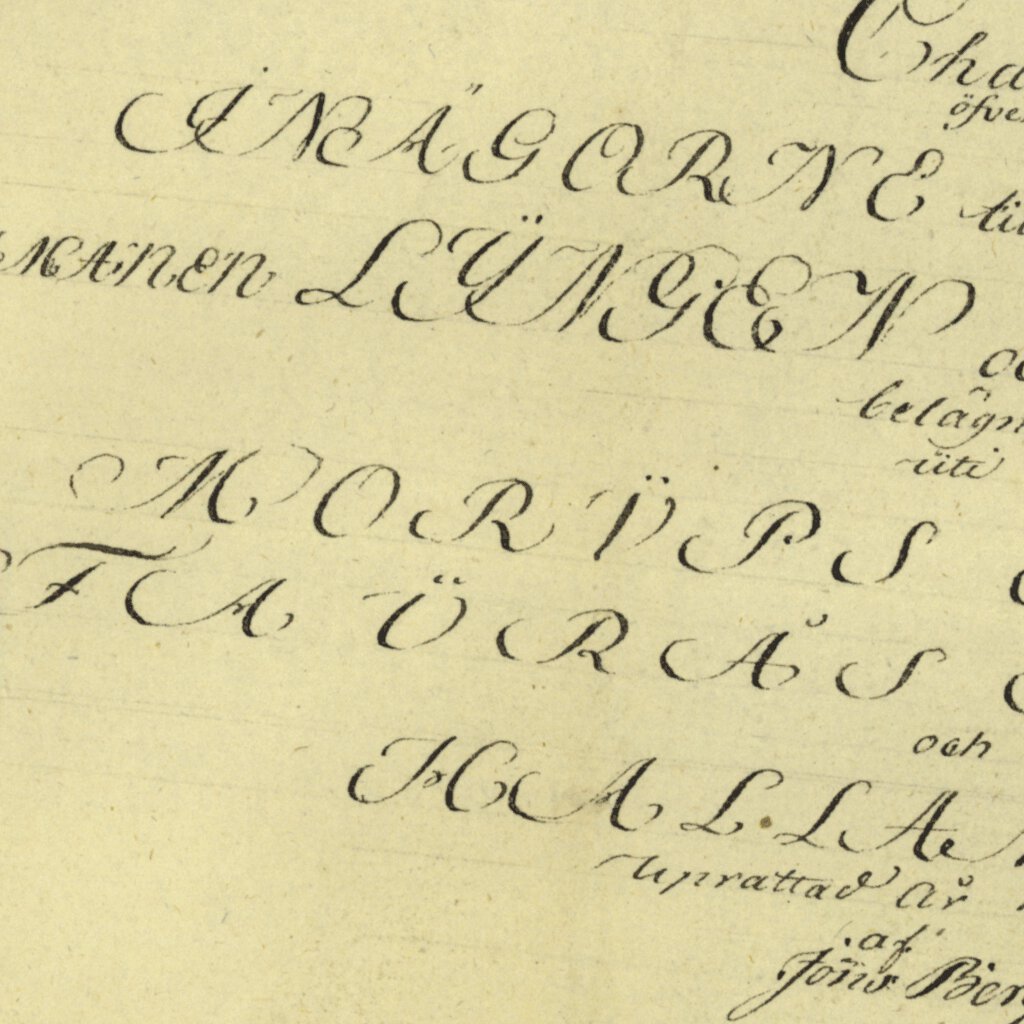 Cha
öfve
INÄGORNE til
manen LŸNGEN oc
belägn
üti
MORÜPS S
FAÜRÅS
och
HALLAN
Uprättad År
af
Jöns Ber